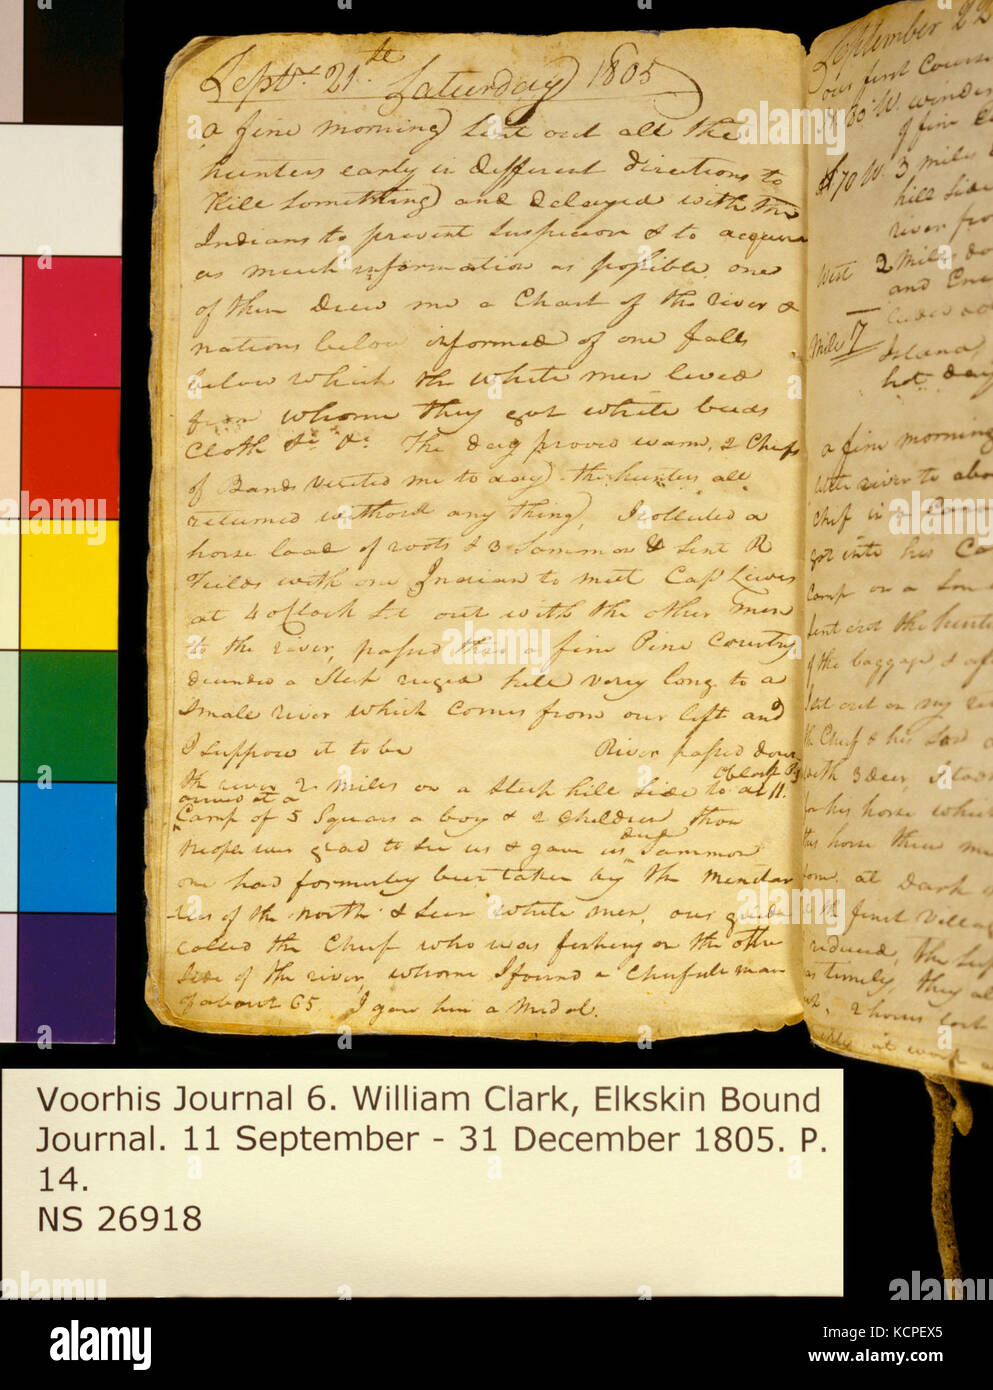 Septr. 21th Saturday 1805
a fine morning Sent out all the
hunters early in different directions to
Kill Something and delayed with the
Indians to prevent Suspicion & to acquire
as much information as possible. one
of them Drew me a Chart of the river &
nations below informed of one falls
below which the white men lived
from whome they got white beeds
Cloth &c &c The day proved warm, 2 Chifs
of Bands visited me to day. the hunters all
returned without any thing, I collected a
horse load of roots & 3 Sammon & Sent R
Fields with one Indian to meet Capt Lewis
at 4 oClock Set out with the other men
to the river, passed thro a fine Pine Country
decended a Steep ruged hill very long to a
Small river which comes from our left and
I suppose it to be River passed down
the river 2 miles on a Steep hill Side to at 11.
oClock P.M.
arrived at a
Camp of 5 Squars a boy & 2 Children those
people were glad to See us & gave us dried Sammon
one had formerly been taken by the Menitar
-rees of the north & Seen white men, our guide
called the Chief who was fishing on the other
Side of the river, whome I found a Cherfull man
of about 65 I gave him a Medal.
September 22
our first Course
N. 80° W. winde
of fine
S 70 W. 3 miles
hill Side
river fro
West 2 miles do
and
Mile 7
Island,
hot day
a fine morning
river to abo
Chief in a Cano
got into his Ca
Camp on a
Sent out the hunte
of the baggage &
Set out on my
the Chief & his Son
with 3 deer,
for his horse which
this horse threw me
at Dark
the first Villag
reduced, the
they al
2 horses lost
Voorhis Journal 6. William Clark, Elkskin Bound
Journal. 11 September - 31 December 1805. P.
14.
NS 26918
alamy
Image ID: KCPEX5
www.alamy.com